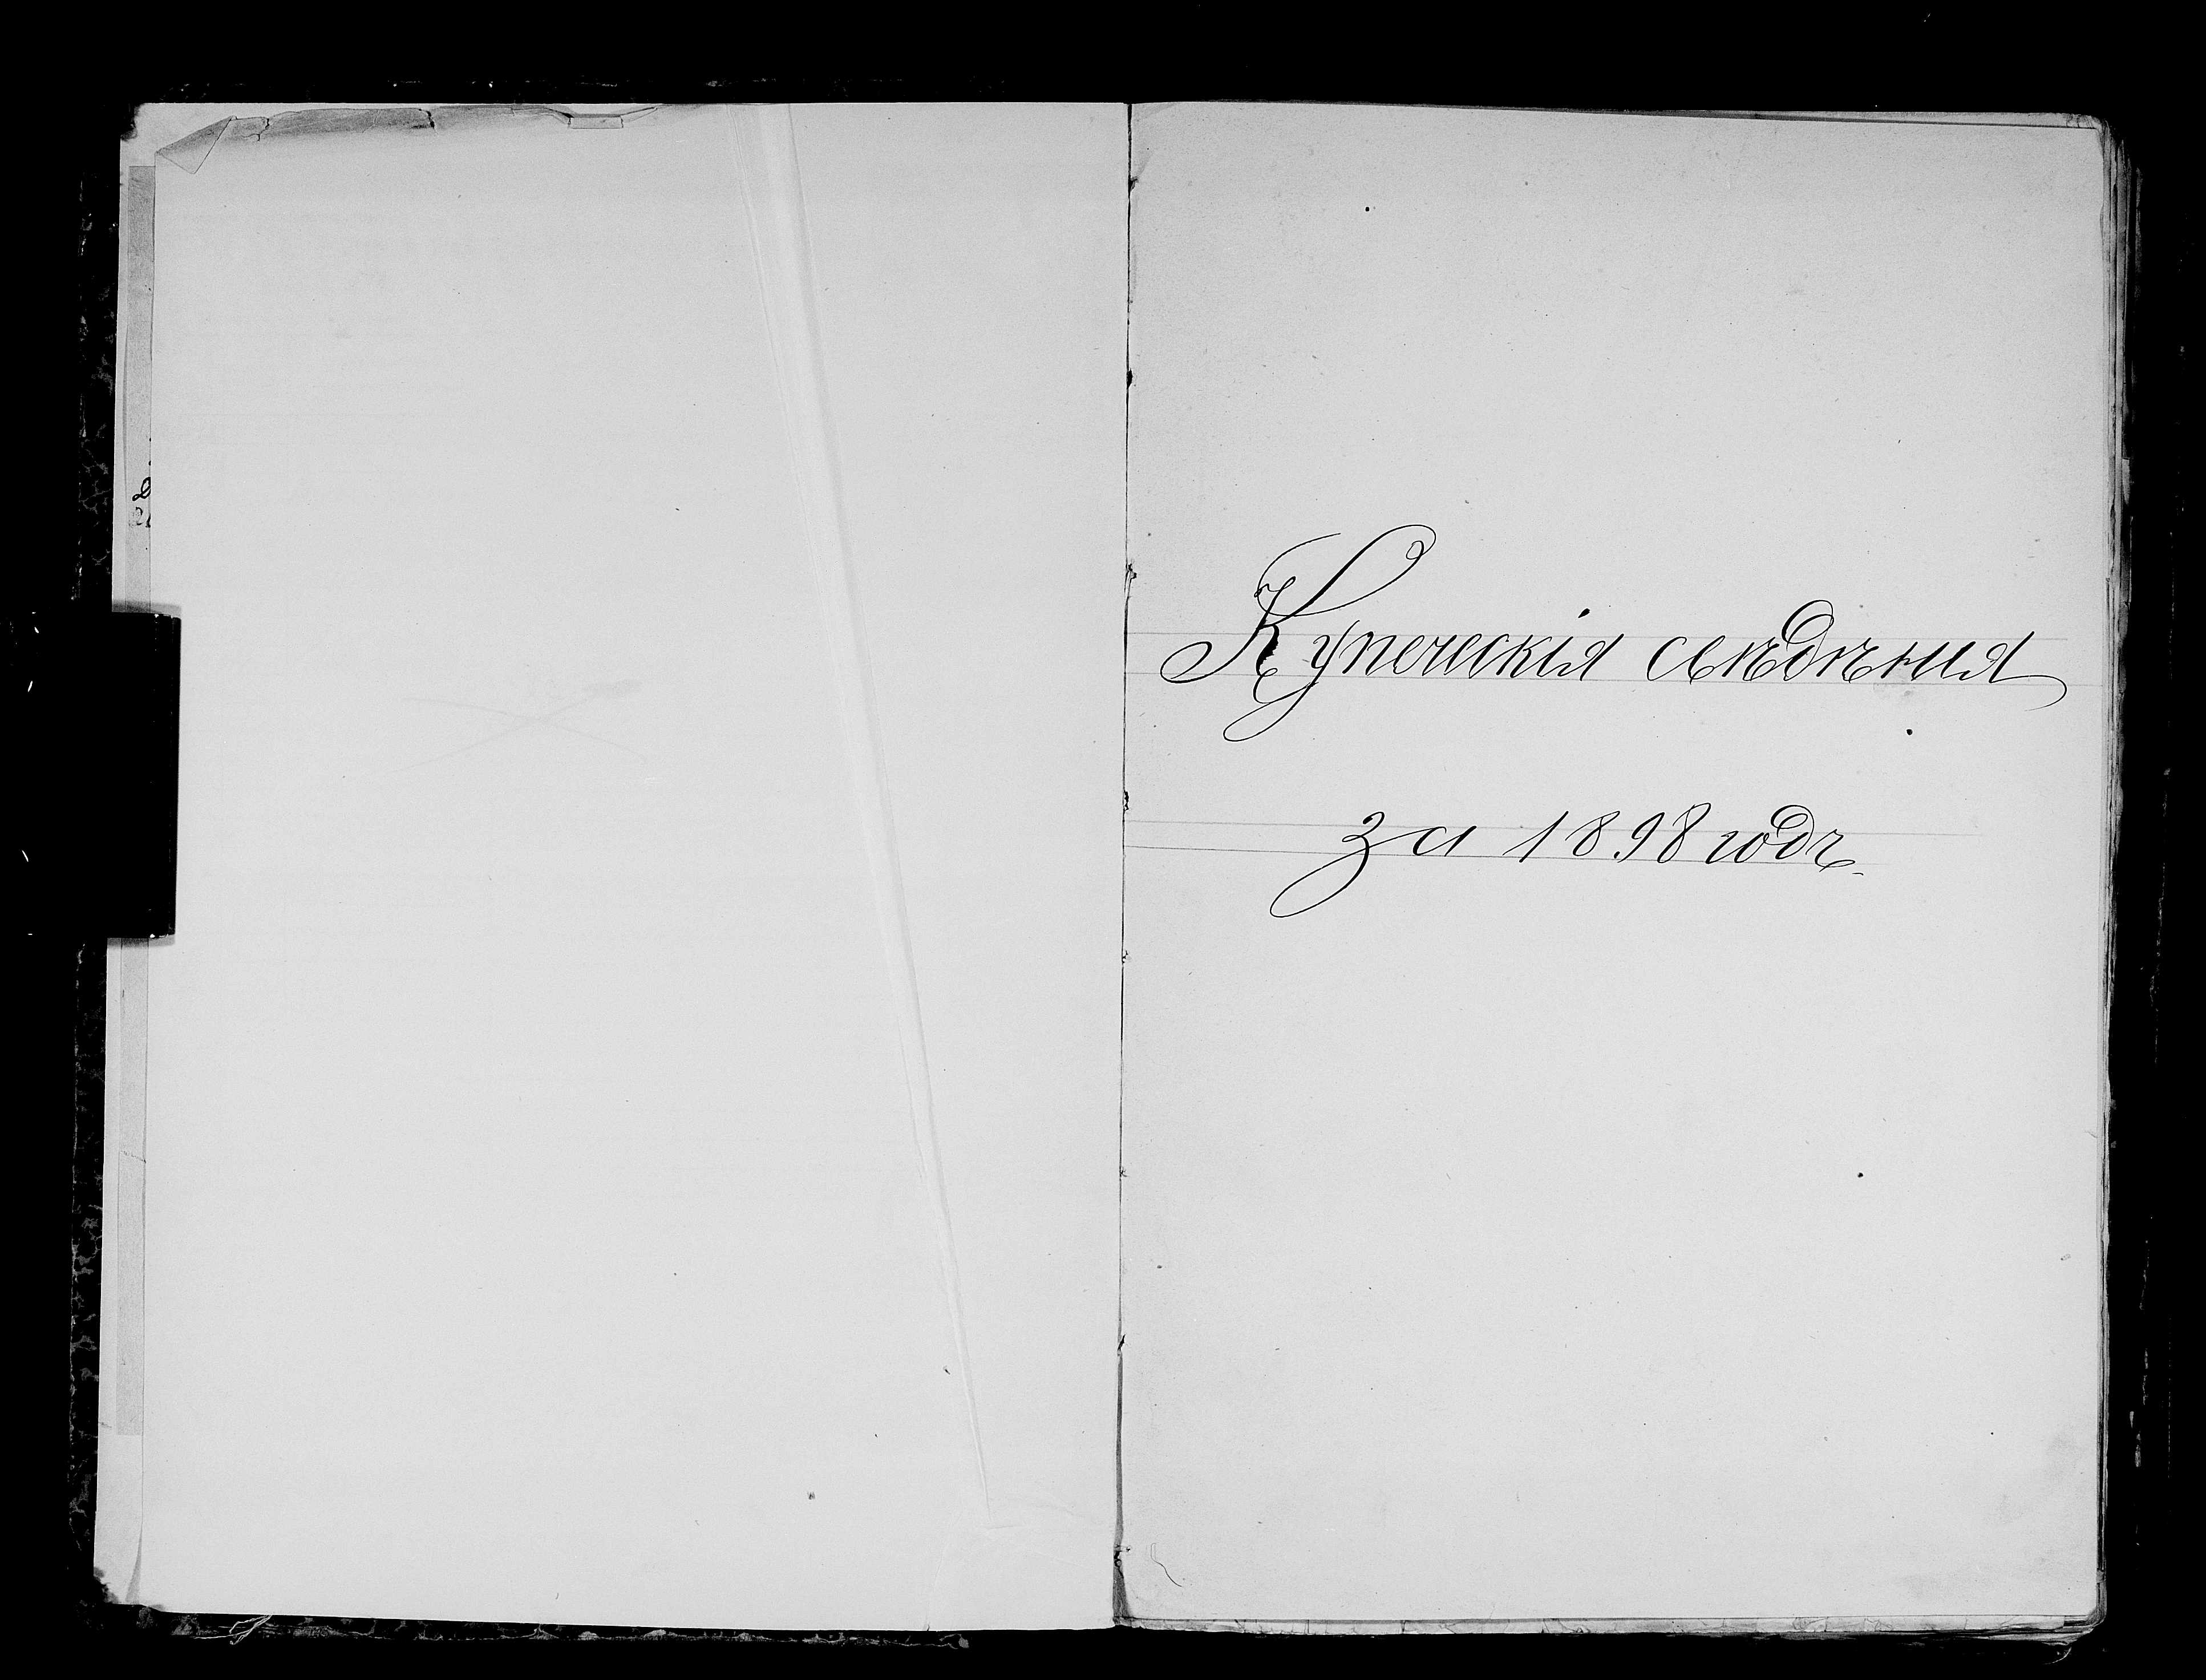 Купеческія свѣдѣния
за 1898 годъ.